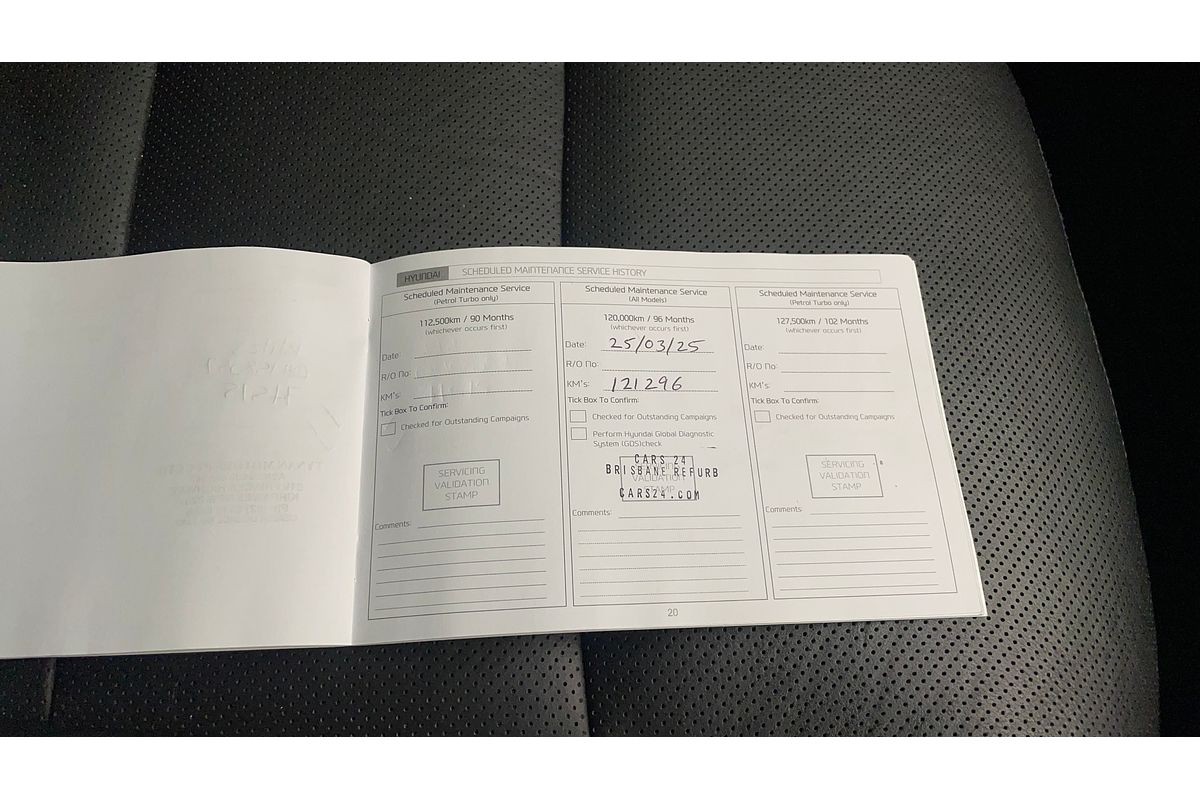 HYUNDAI SCHEDULED MAINTENANCE SERVICE HISTORY
Scheduled Maintenance Service
(Petrol Turbo only)
112,500km / 90 Months
(whichever occurs first)
Date:
R/O No:
KM's:
Tick Box To Confirm:
Checked for Outstanding Campaigns
SERVICING
VALIDATION
STAMP
Comments:
Scheduled Maintenance Service
(All Models)
120,000km / 96 Months
(whichever occurs first)
Date: 25/03/25
R/O No:
KM's: 121296
Tick Box To Confirm:
Checked for Outstanding Campaigns
Perform Hyundai Global Diagnostic
System (GDS)check
CARS 24
BRISBANE REFURB
VALIDATION
CARS24.COM
Comments:
Scheduled Maintenance Service
(Petrol Turbo only)
127,500km / 102 Months
(whichever occurs first)
Date:
R/O No:
KM's:
Tick Box To Confirm:
Checked for Outstanding Campaigns
SERVICING
VALIDATION
STAMP
Comments:
20